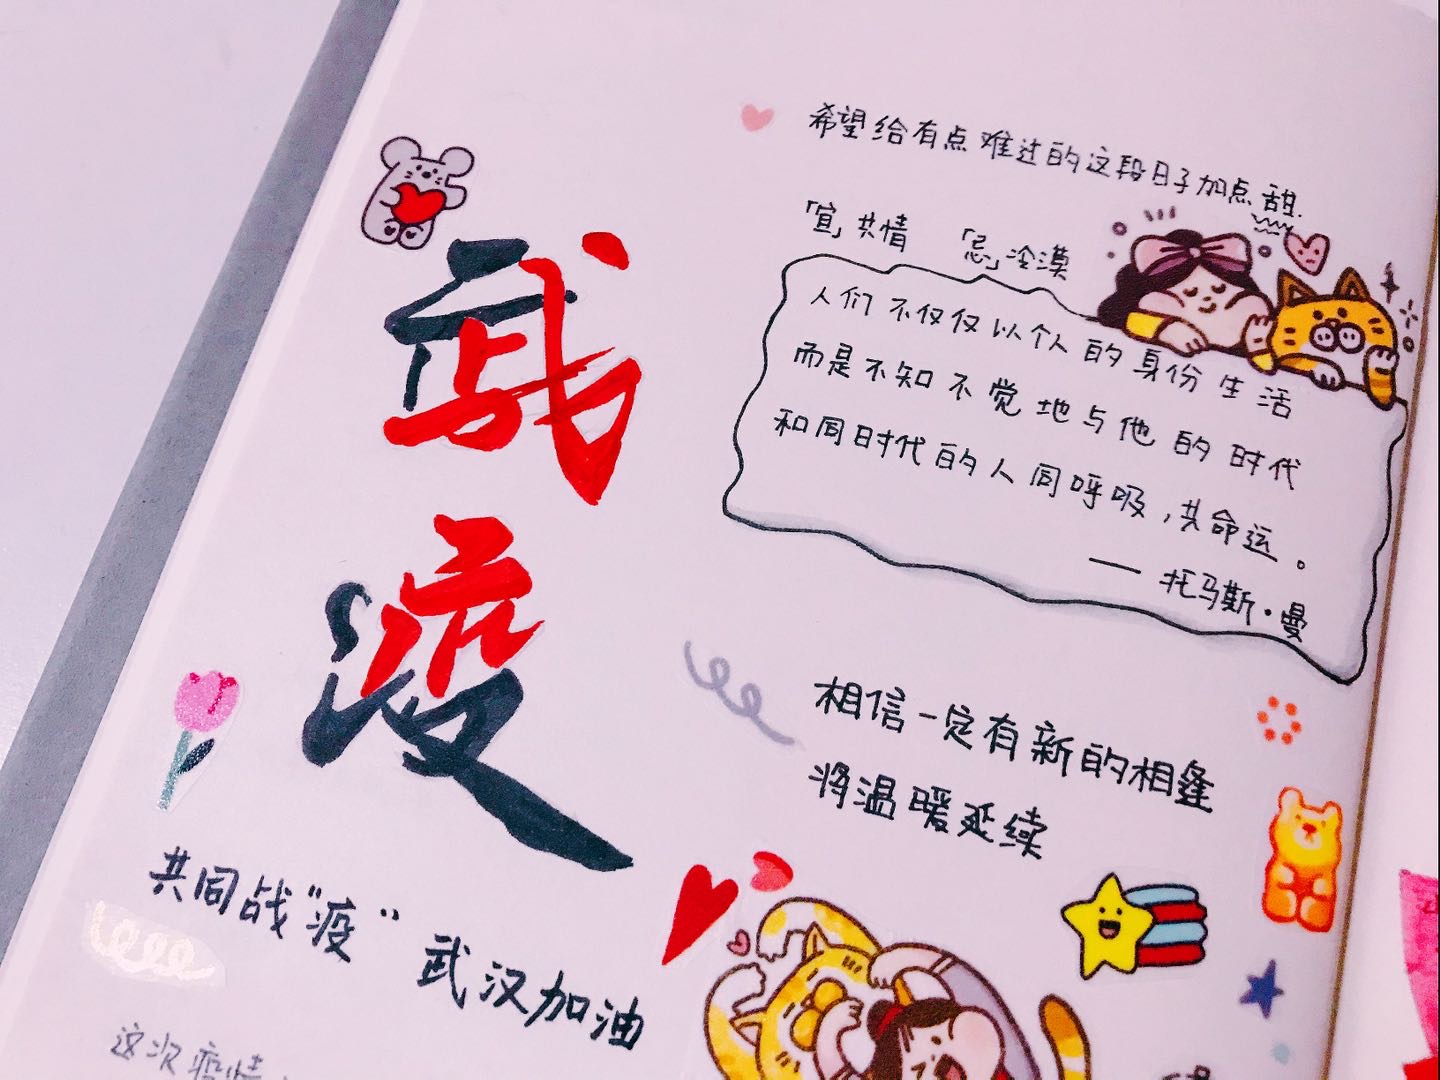 战
疫
共同战“疫” 武汉加油
这次疫情
希望给有点难过的这段日子加点甜.
「宜」共情 「忌」冷漠
人们不仅仅以个人的身份生活
而是不知不觉地与他的时代
和同时代的人同呼吸，共命运。
—— 托马斯·曼
相信一定有新的相逢
将温暖延续